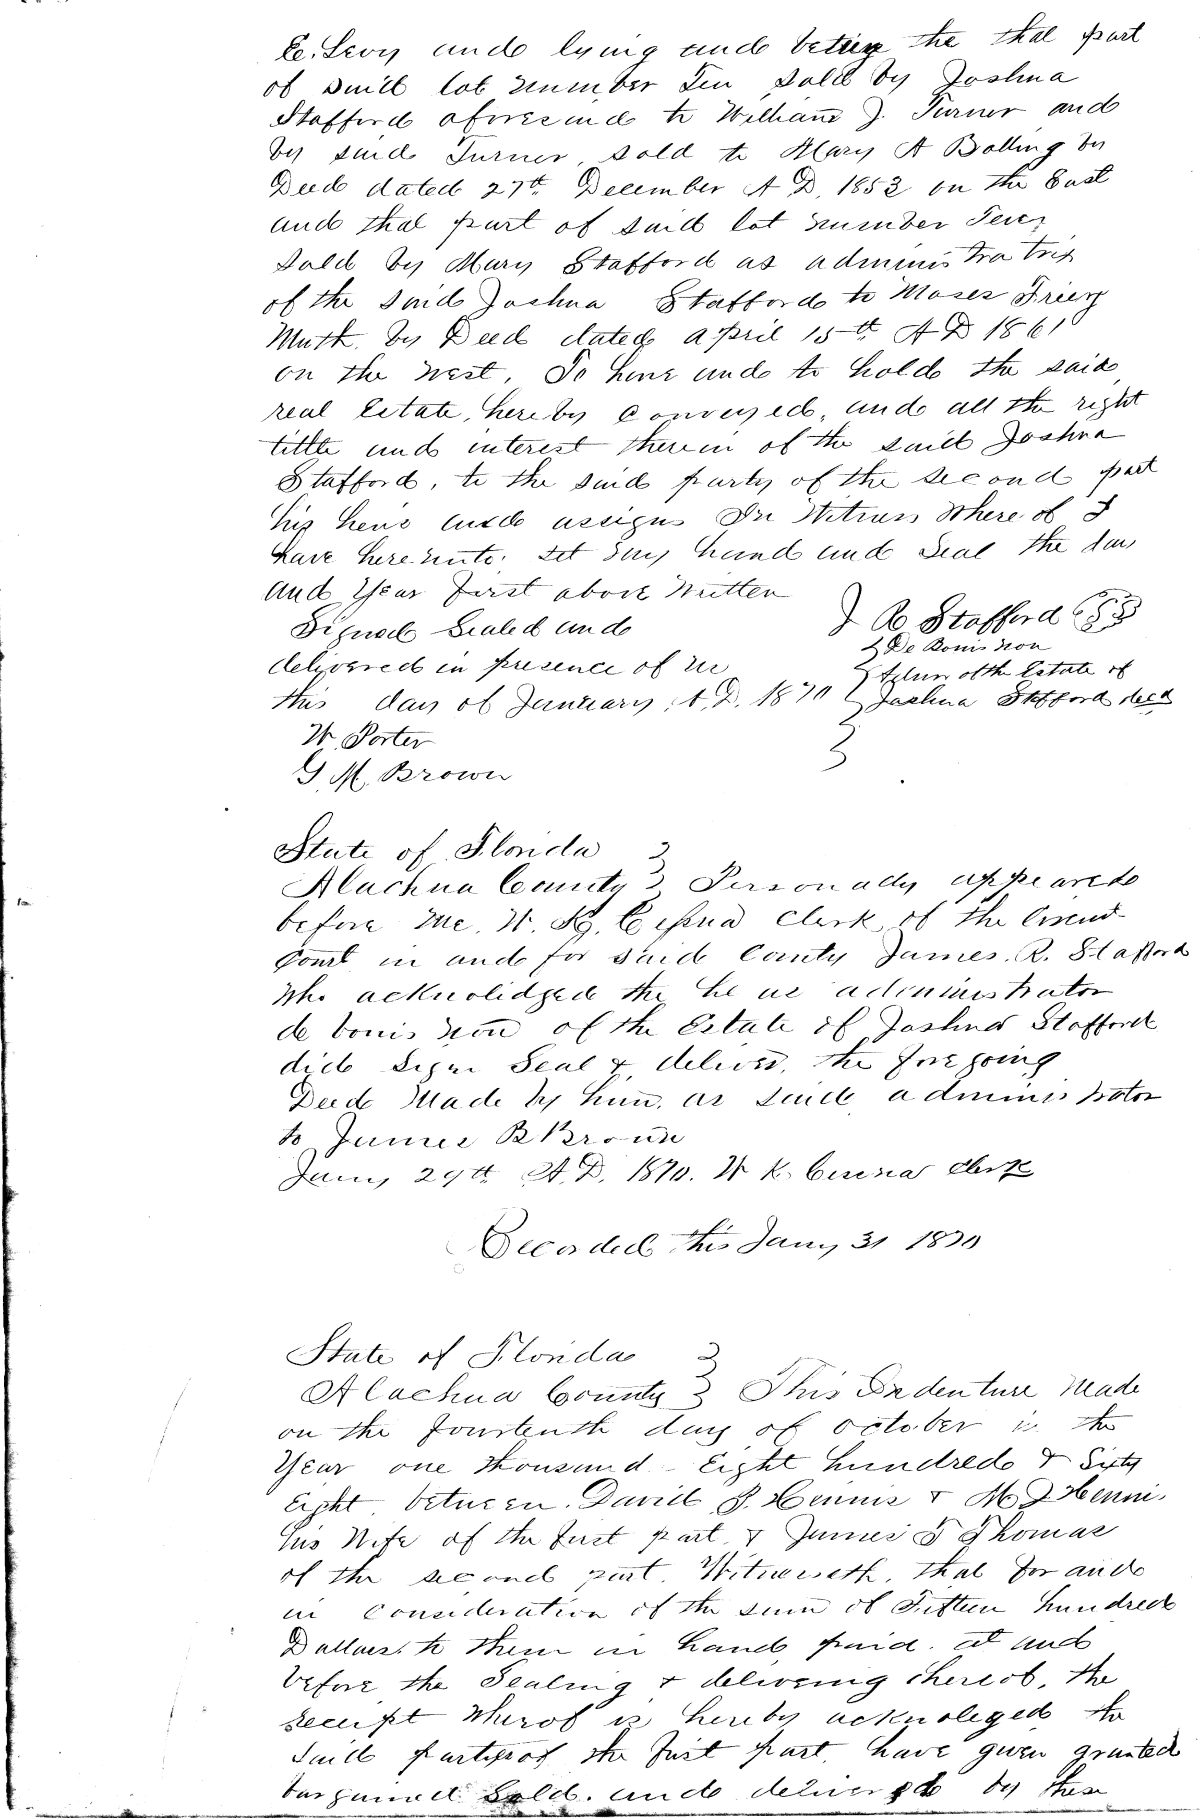 C. Levy and lying and being the that part
of said lot number Ten sold by Joshua
Stafford aforesaid to William J. Turner and
by said Turner, sold to Mary A Bolling by
Deed dated 27th December A D. 1853 on the East
and that part of said lot number Ten
sold by Mary Stafford as administratrix
of the said Joshua Stafford to Moses
by Deed dated April 15th A D 1861
on the West. To have and to hold the said
real Estate, hereby conveyed, and all the right
tittle and interest therein of the said Joshua
Stafford, to the said party of the second part
his heirs and assigns In Witness Where of I
have here unto set my hand and Seal the day
and Year first above written
J R Stafford
Signed Sealed and
De Bonis non
delivered in presence of
Admr of the Estate of
this day of January, A. D. 1870
Joshua Stafford decd
W. Porter
G. M. Brown
State of Florida
Alachua County Personally appeared
before me, W. K. Cessna Clerk of the Circuit
Court in and for said County James. R. Stafford
Who acknolidged the he as administrator
de bonis non of the Estate of Joshua Stafford
did Sign Seal & deliver, the foregoing
Deed Made by him, as said administrator
to James B Brown
Jany 29th A. D. 1870. W K. Cessna Clerk
Recorded this Jany 31 1870
State of Florida
Alachua County This Indenture Made
on the fourteenth day of October in the
Year one thousand Eight hundred & Sixty
Eight between David &
his Wife of the first part, & James T Thomas
of the second part. Witnesseth, that for and
in consideration of the sum of Fifteen hundred
Dollars to them in hand paid. at and
before the Sealing & delivering thereof, the
receipt wherof is hereby acknoleged the
said partys of the first part, have given granted
bargained Sold. and delivered by these